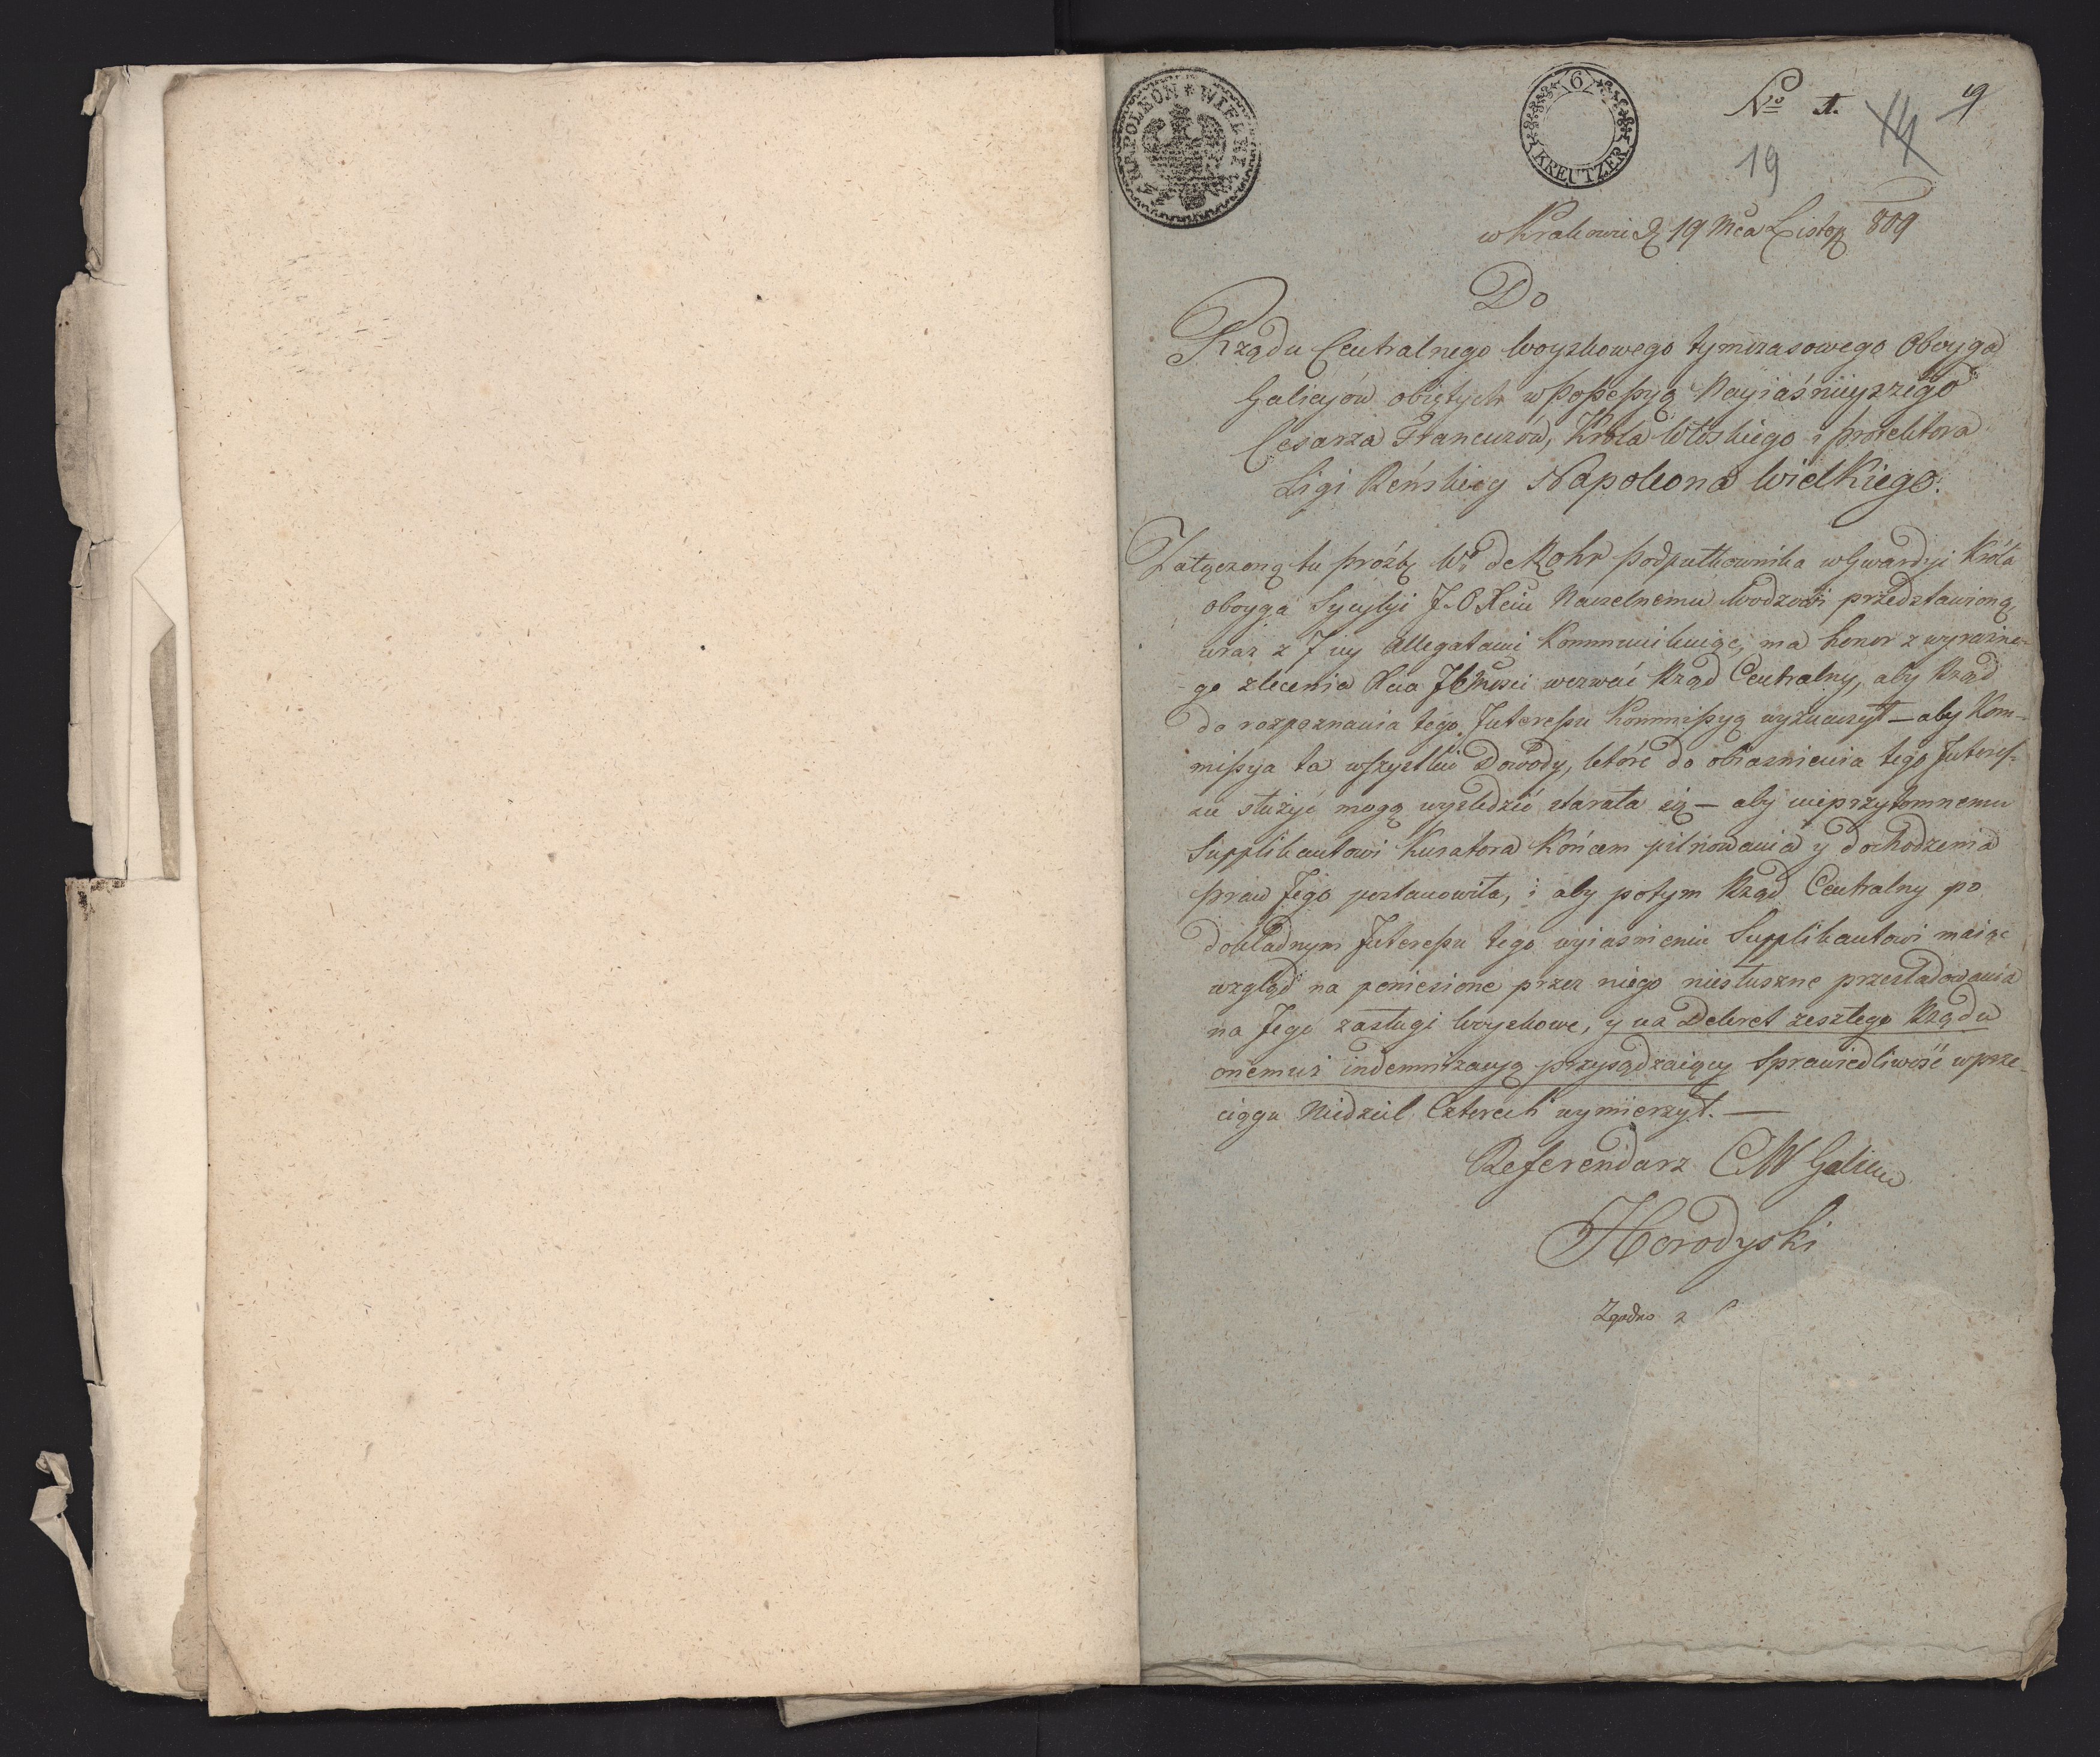 NAPOLEON * WIELKI
6
KREUTZER
No 1.
14
9
19
w Krakowie d 19 Mca Listop 809
Do
Rządu Centralnego Woyskowego tymczasowego Oboyga
Galicyów obiętych w Possessyą Nayiaśnieyszego
Cesarza Francuzów, Króla Włoskiego i protektora
Ligi Reńskiey Napoleona Wielkiego.
Załączoną tu prozbę W. de Rohr podpułkownika w Gwardyi Króla
oboyga Sycylyi J. O Xciu Naczelnemu Wodzowi przedstawioną,
wraz z 7 iu Allegatami Kommunikuiąc, ma honor z wyraźne-
go zlecenia Xcia JEmości wezwać Rząd Centralny, aby Rząd
do rozpoznania tego Interessu Kommissyą wyznaczył — aby Kom-
missya ta wszystkie Dowody, które do obiasnienia tego Interes-
su służyć mogą wysledzić starała się — aby nieprzytomnemu
Supplikantowi Kuratora Końcem pilnowania y dochodzenia
praw Jego postanowiła, i aby potym Rząd Centralny po
dokładnym Interessu tego wyiasnieniu Supplikantowi maiąc
wzgląd na poniesione przez niego niesłuszne przesladowania
na Jego zasługi Woyskowe, y na Dekret zeszłego Rządu
onemuż indemnizacyą przysądzaiący Sprawiedliwość w prze-
ciągu Niedziel Czterech wymierzył. —
Referendarz CW Galicu
Horodyski
Zgodno z